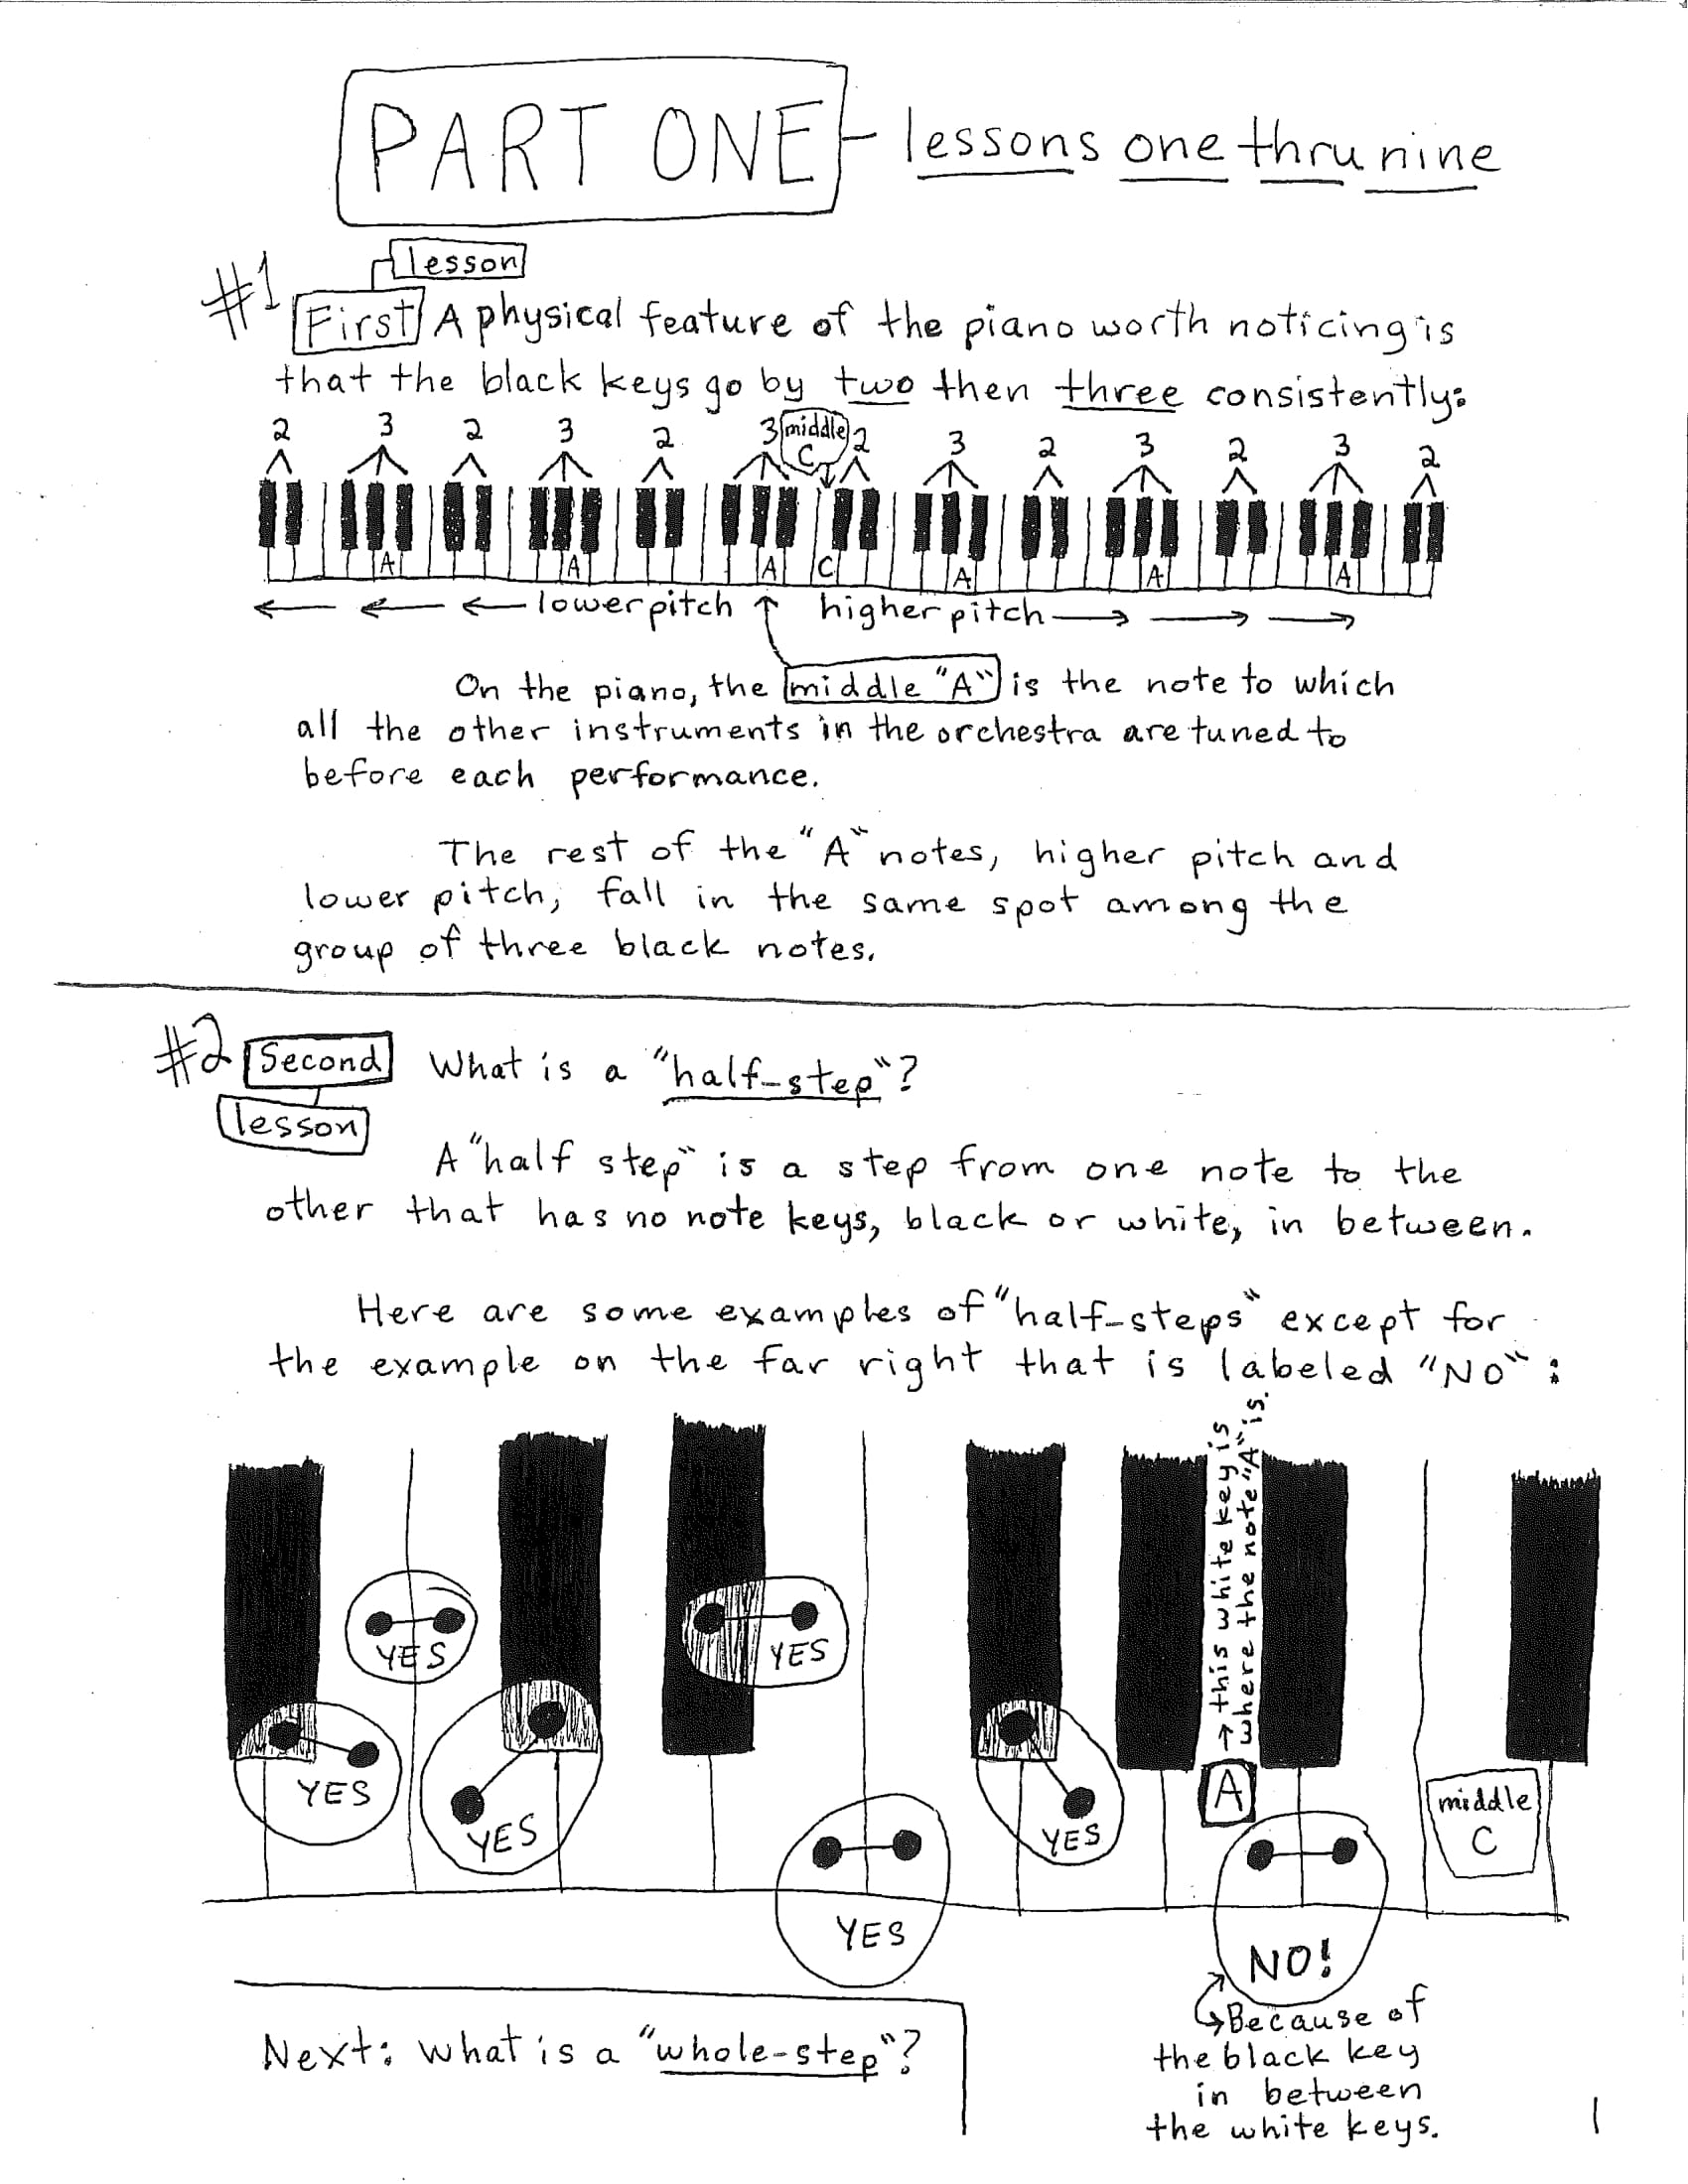 PART ONE - lessons one thru nine
#1 First lesson A physical feature of the piano worth noticing is
that the black keys go by two then three consistently:
2 3 2 3 2 3 middle C 2 3 2 3 2 3 2
A A A C A A A
← ← ← lower pitch ↑ higher pitch → → →
On the piano, the middle "A" is the note to which
all the other instruments in the orchestra are tuned to
before each performance.
The rest of the "A" notes, higher pitch and
lower pitch, fall in the same spot among the
group of three black notes.
#2 Second lesson What is a "half-step"?
A "half step" is a step from one note to the
other that has no note keys, black or white, in between.
Here are some examples of "half-steps" except for
the example on the far right that is labeled "NO":
→ this white key is
where the note "A" is.
YES
YES
YES
YES
YES
YES
A
middle
C
NO!
Because of
the black key
in between
the white keys.
Next: What is a "whole-step"?
1